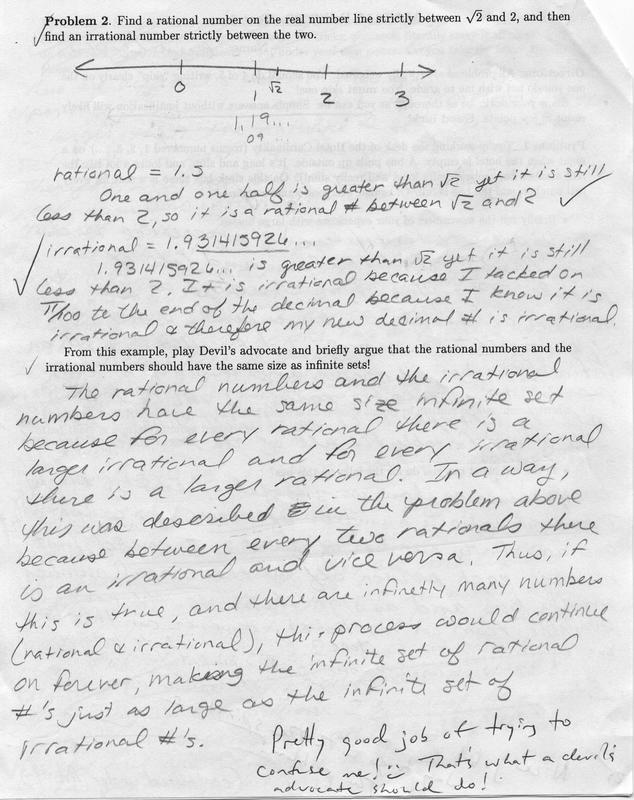 Problem 2. Find a rational number on the real number line strictly between √2 and 2, and then
find an irrational number strictly between the two.
0 1 √2 2 3
1.19...
09
rational = 1.5
One and one half is greater than √2 yet it is still
less than 2, so it is a rational # between √2 and 2
irrational = 1.931415926...
1.931415926... is greater than √2 yet it is still
less than 2. It is irrational because I tacked on
π/100 to the end of the decimal because I know it is
irrational & therefore my new decimal # is irrational.
From this example, play Devil's advocate and briefly argue that the rational numbers and the
irrational numbers should have the same size as infinite sets!
The rational numbers and the irrational
numbers have the same size infinite set
because for every rational there is a
larger irrational and for every irrational
there is a larger rational. In a way,
this was described in the problem above
because between every two rationals there
is an irrational and vice versa. Thus, if
this is true, and there are infinetly many numbers
(rational & irrational), this process would continue
on forever, making the infinite set of rational
#'s just as large as the infinite set of
irrational #'s.
Pretty good job of trying to
confuse me! That's what a devil's
advocate should do!